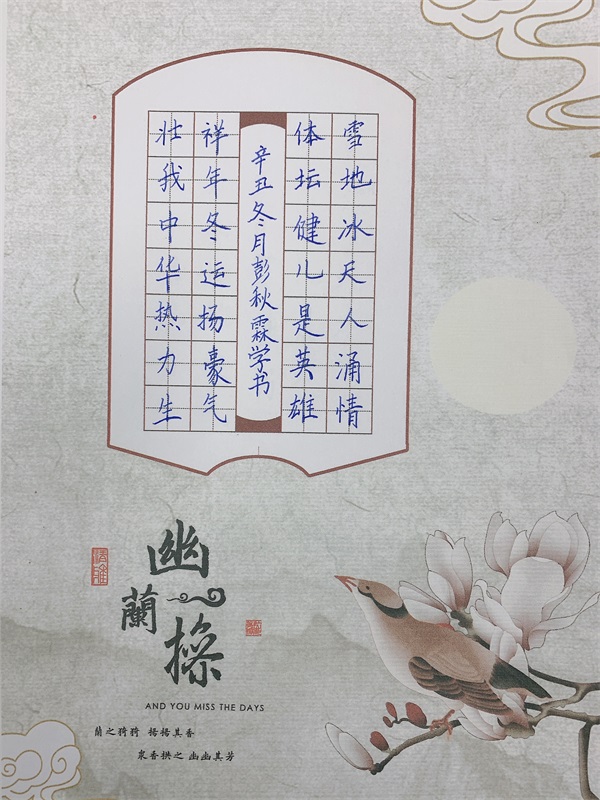 雪地冰天人涌情
体坛健儿是英雄
辛丑冬月彭秋霖学书
祥年冬运扬豪气
壮我中华热力生
幽蘭操
AND YOU MISS THE DAYS
蘭之猗猗 扬扬其香
众香拱之 幽幽其芳